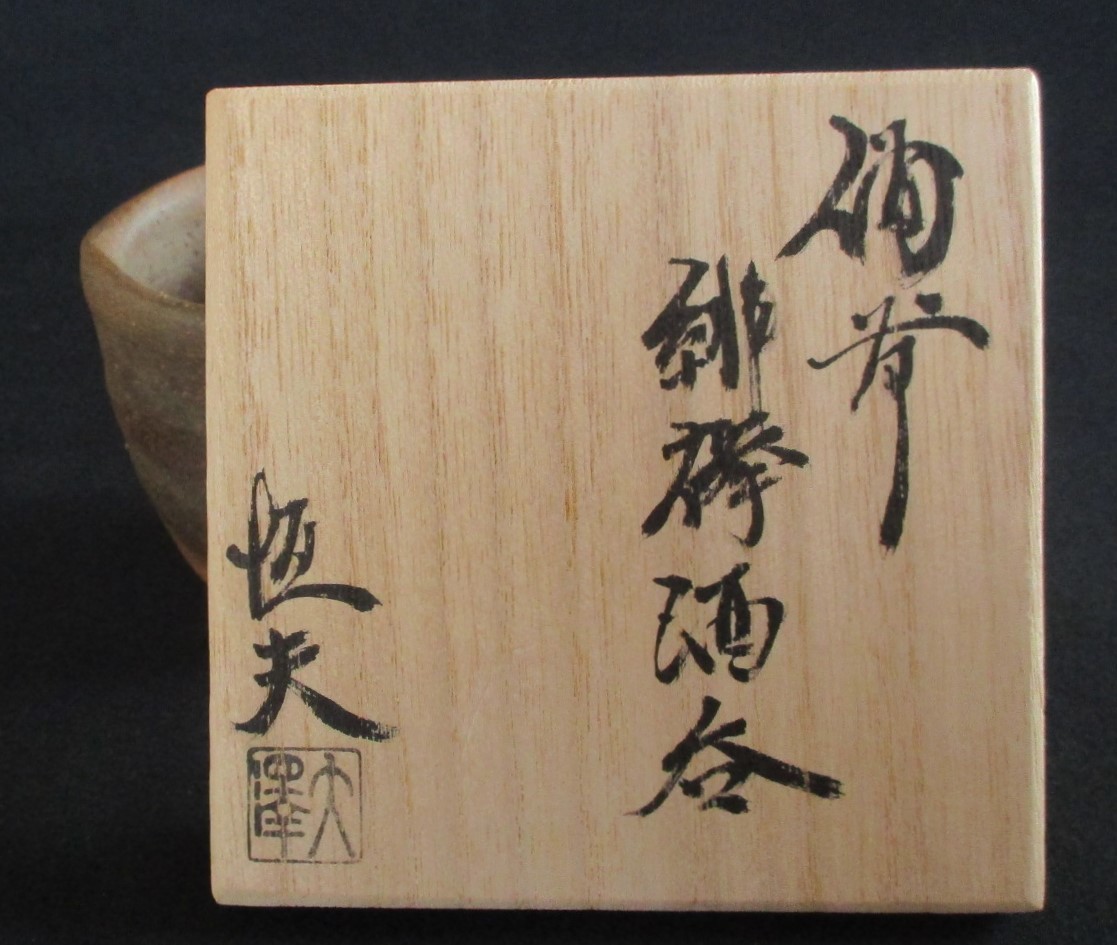 備前
緋襷酒呑
恒夫
大澤